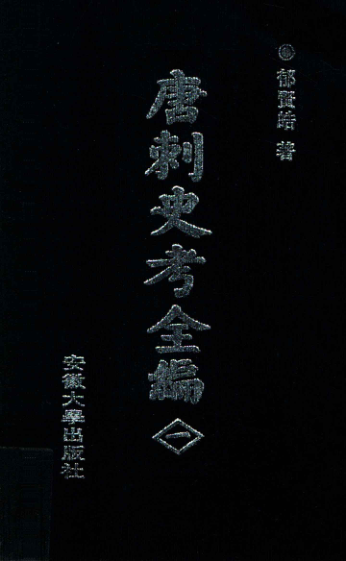 郁賢皓 著
唐刺史考全編
一
安徽大學出版社